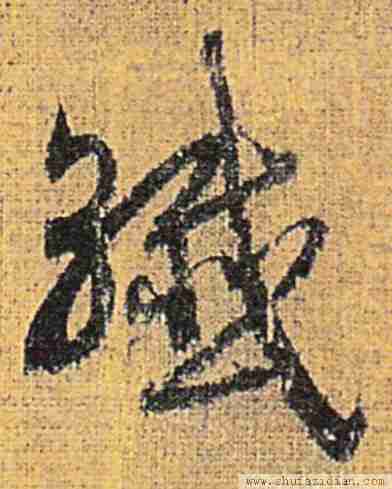 纖
www.shufazidian.com